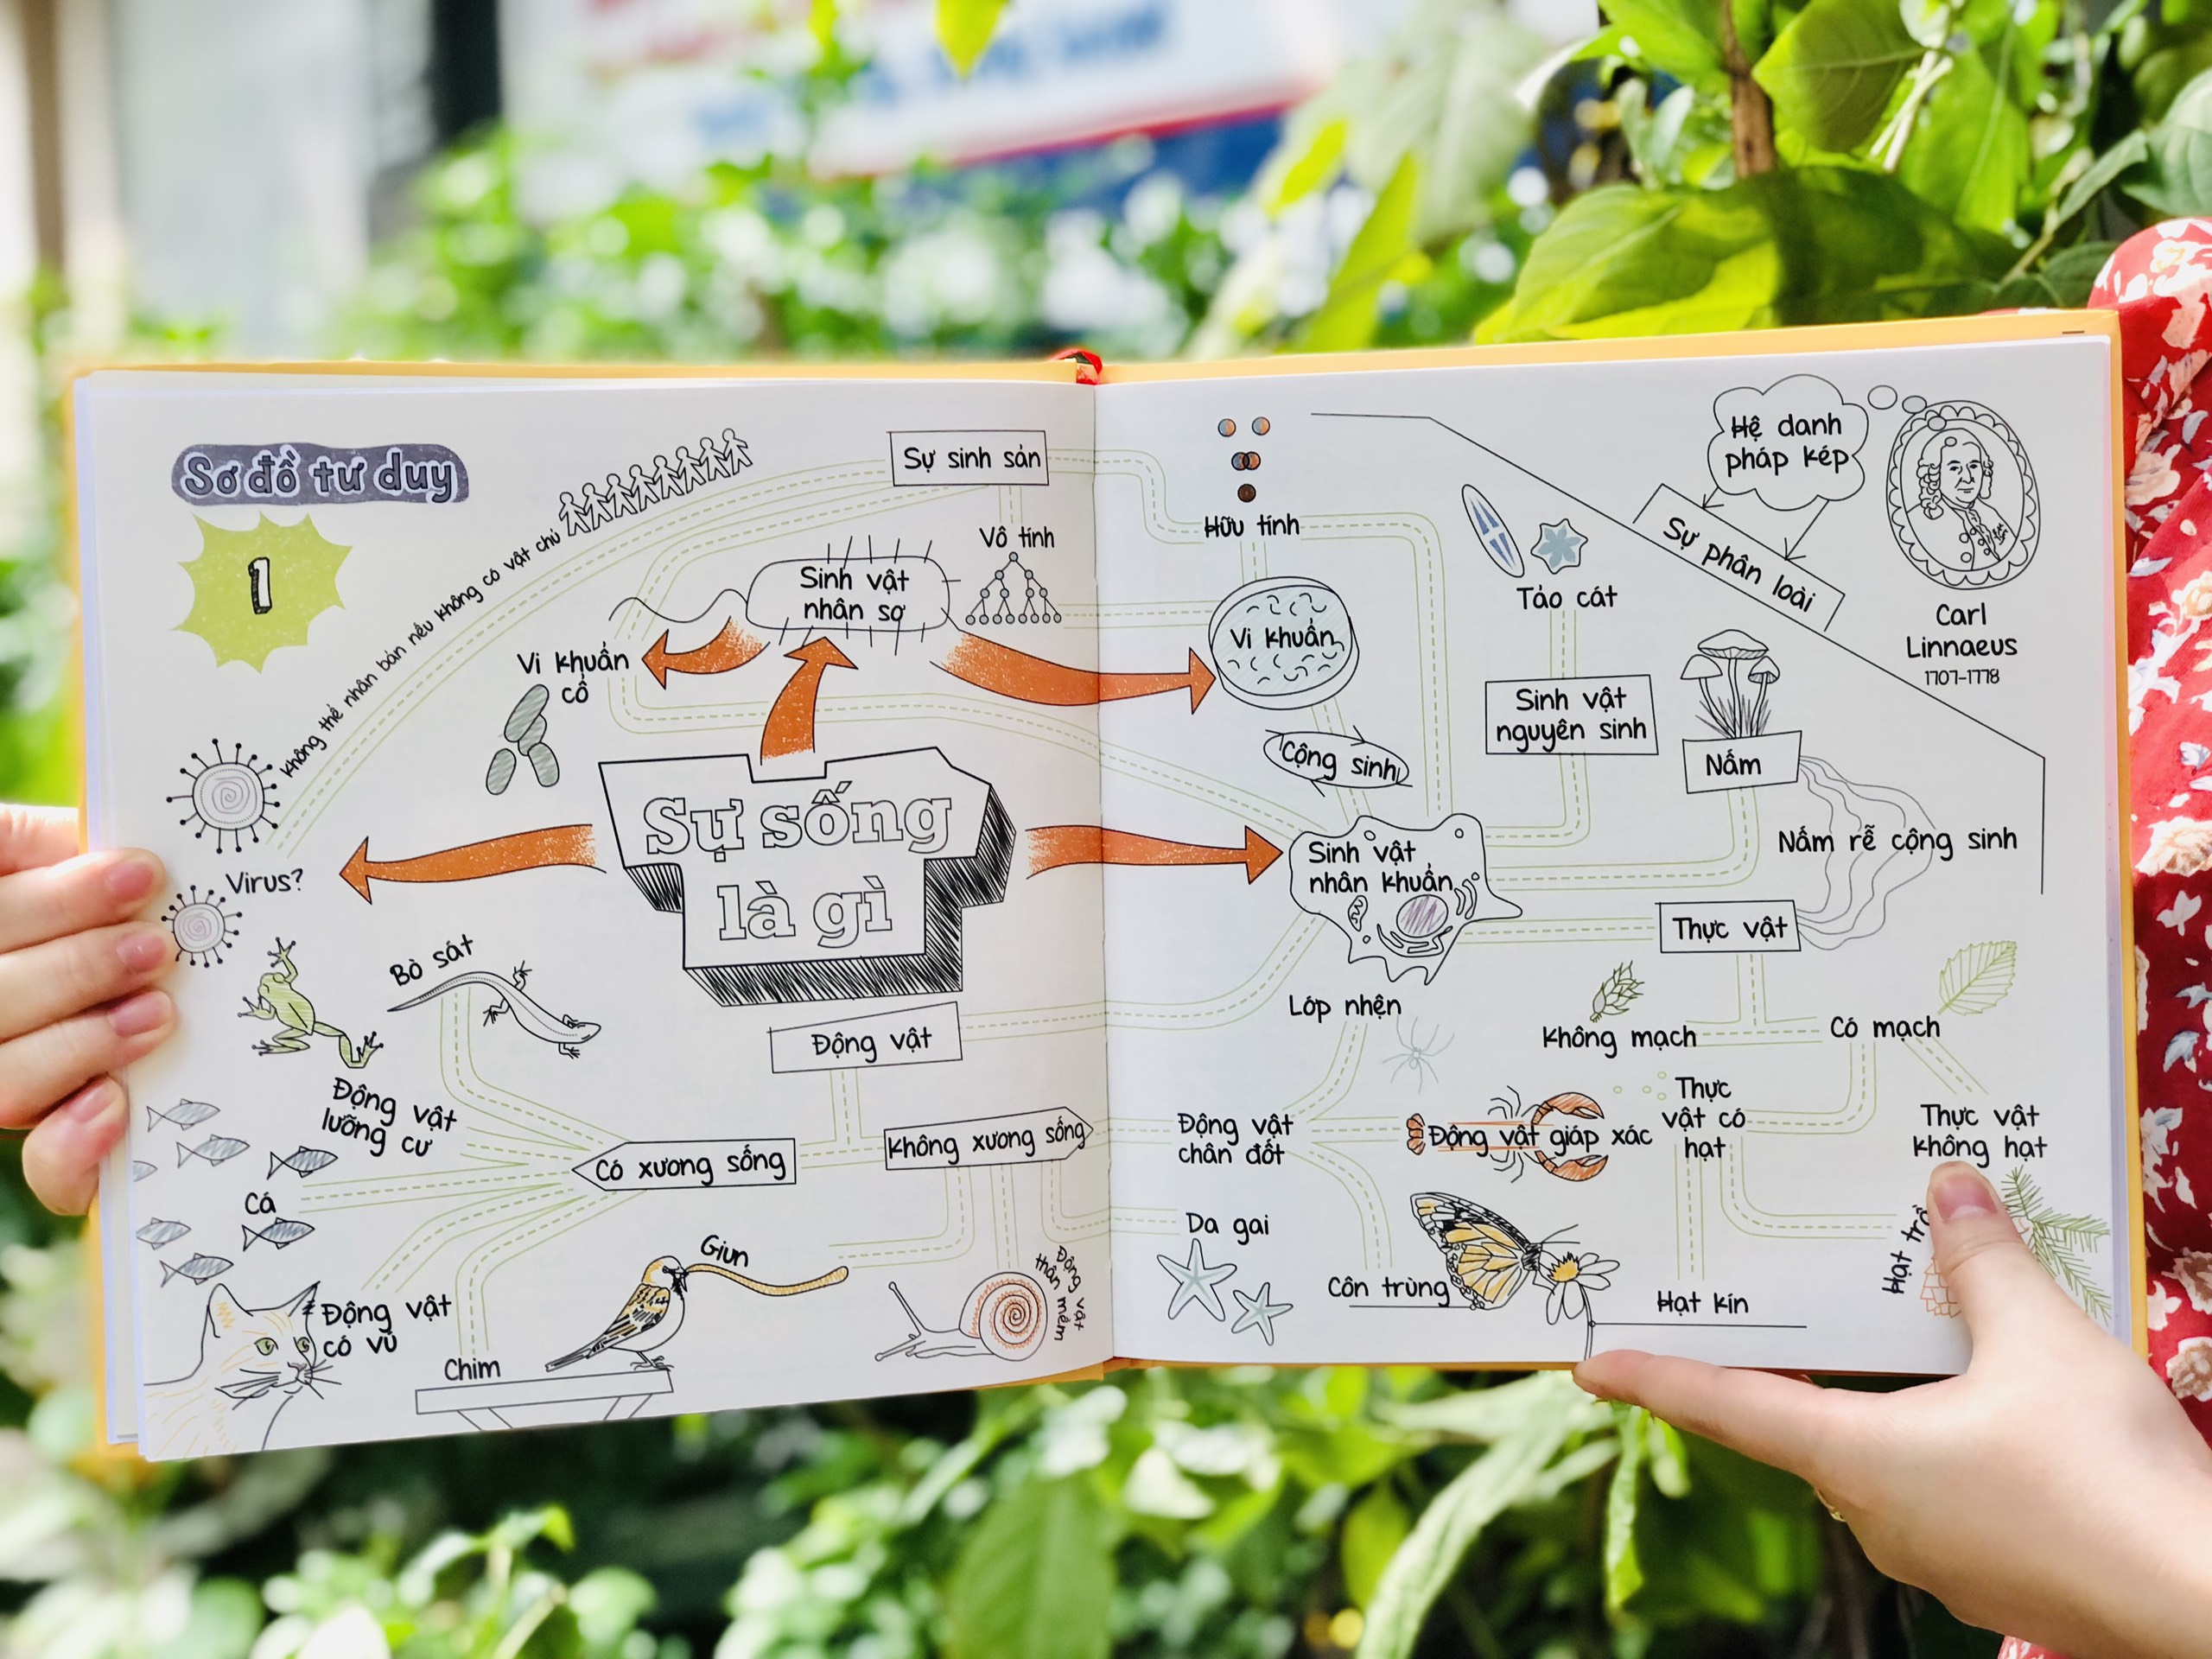 Sơ đồ tư duy
1
Không thể nhân bản nếu không có vật chủ
Sự sinh sản
Vô tính
Sinh vật
nhân sơ
Vi khuẩn
cổ
Virus?
Sự sống
là gì
Bò sát
Động vật
lưỡng cư
Cá
Động vật
có vú
Chim
Giun
Động vật
Có xương sống
Không xương sống
Động vật
thân mềm
Hữu tính
Vi khuẩn
Cộng sinh
Sinh vật
nhân khuẩn
Tảo cát
Sinh vật
nguyên sinh
Nấm
Nấm rễ cộng sinh
Hệ danh
pháp kép
Sự phân loài
Carl
Linnaeus
1707-1778
Thực vật
Không mạch
Có mạch
Thực
vật có
hạt
Thực vật
không hạt
Hạt
Hạt kín
Lớp nhện
Động vật
chân đốt
Động vật giáp xác
Da gai
Côn trùng